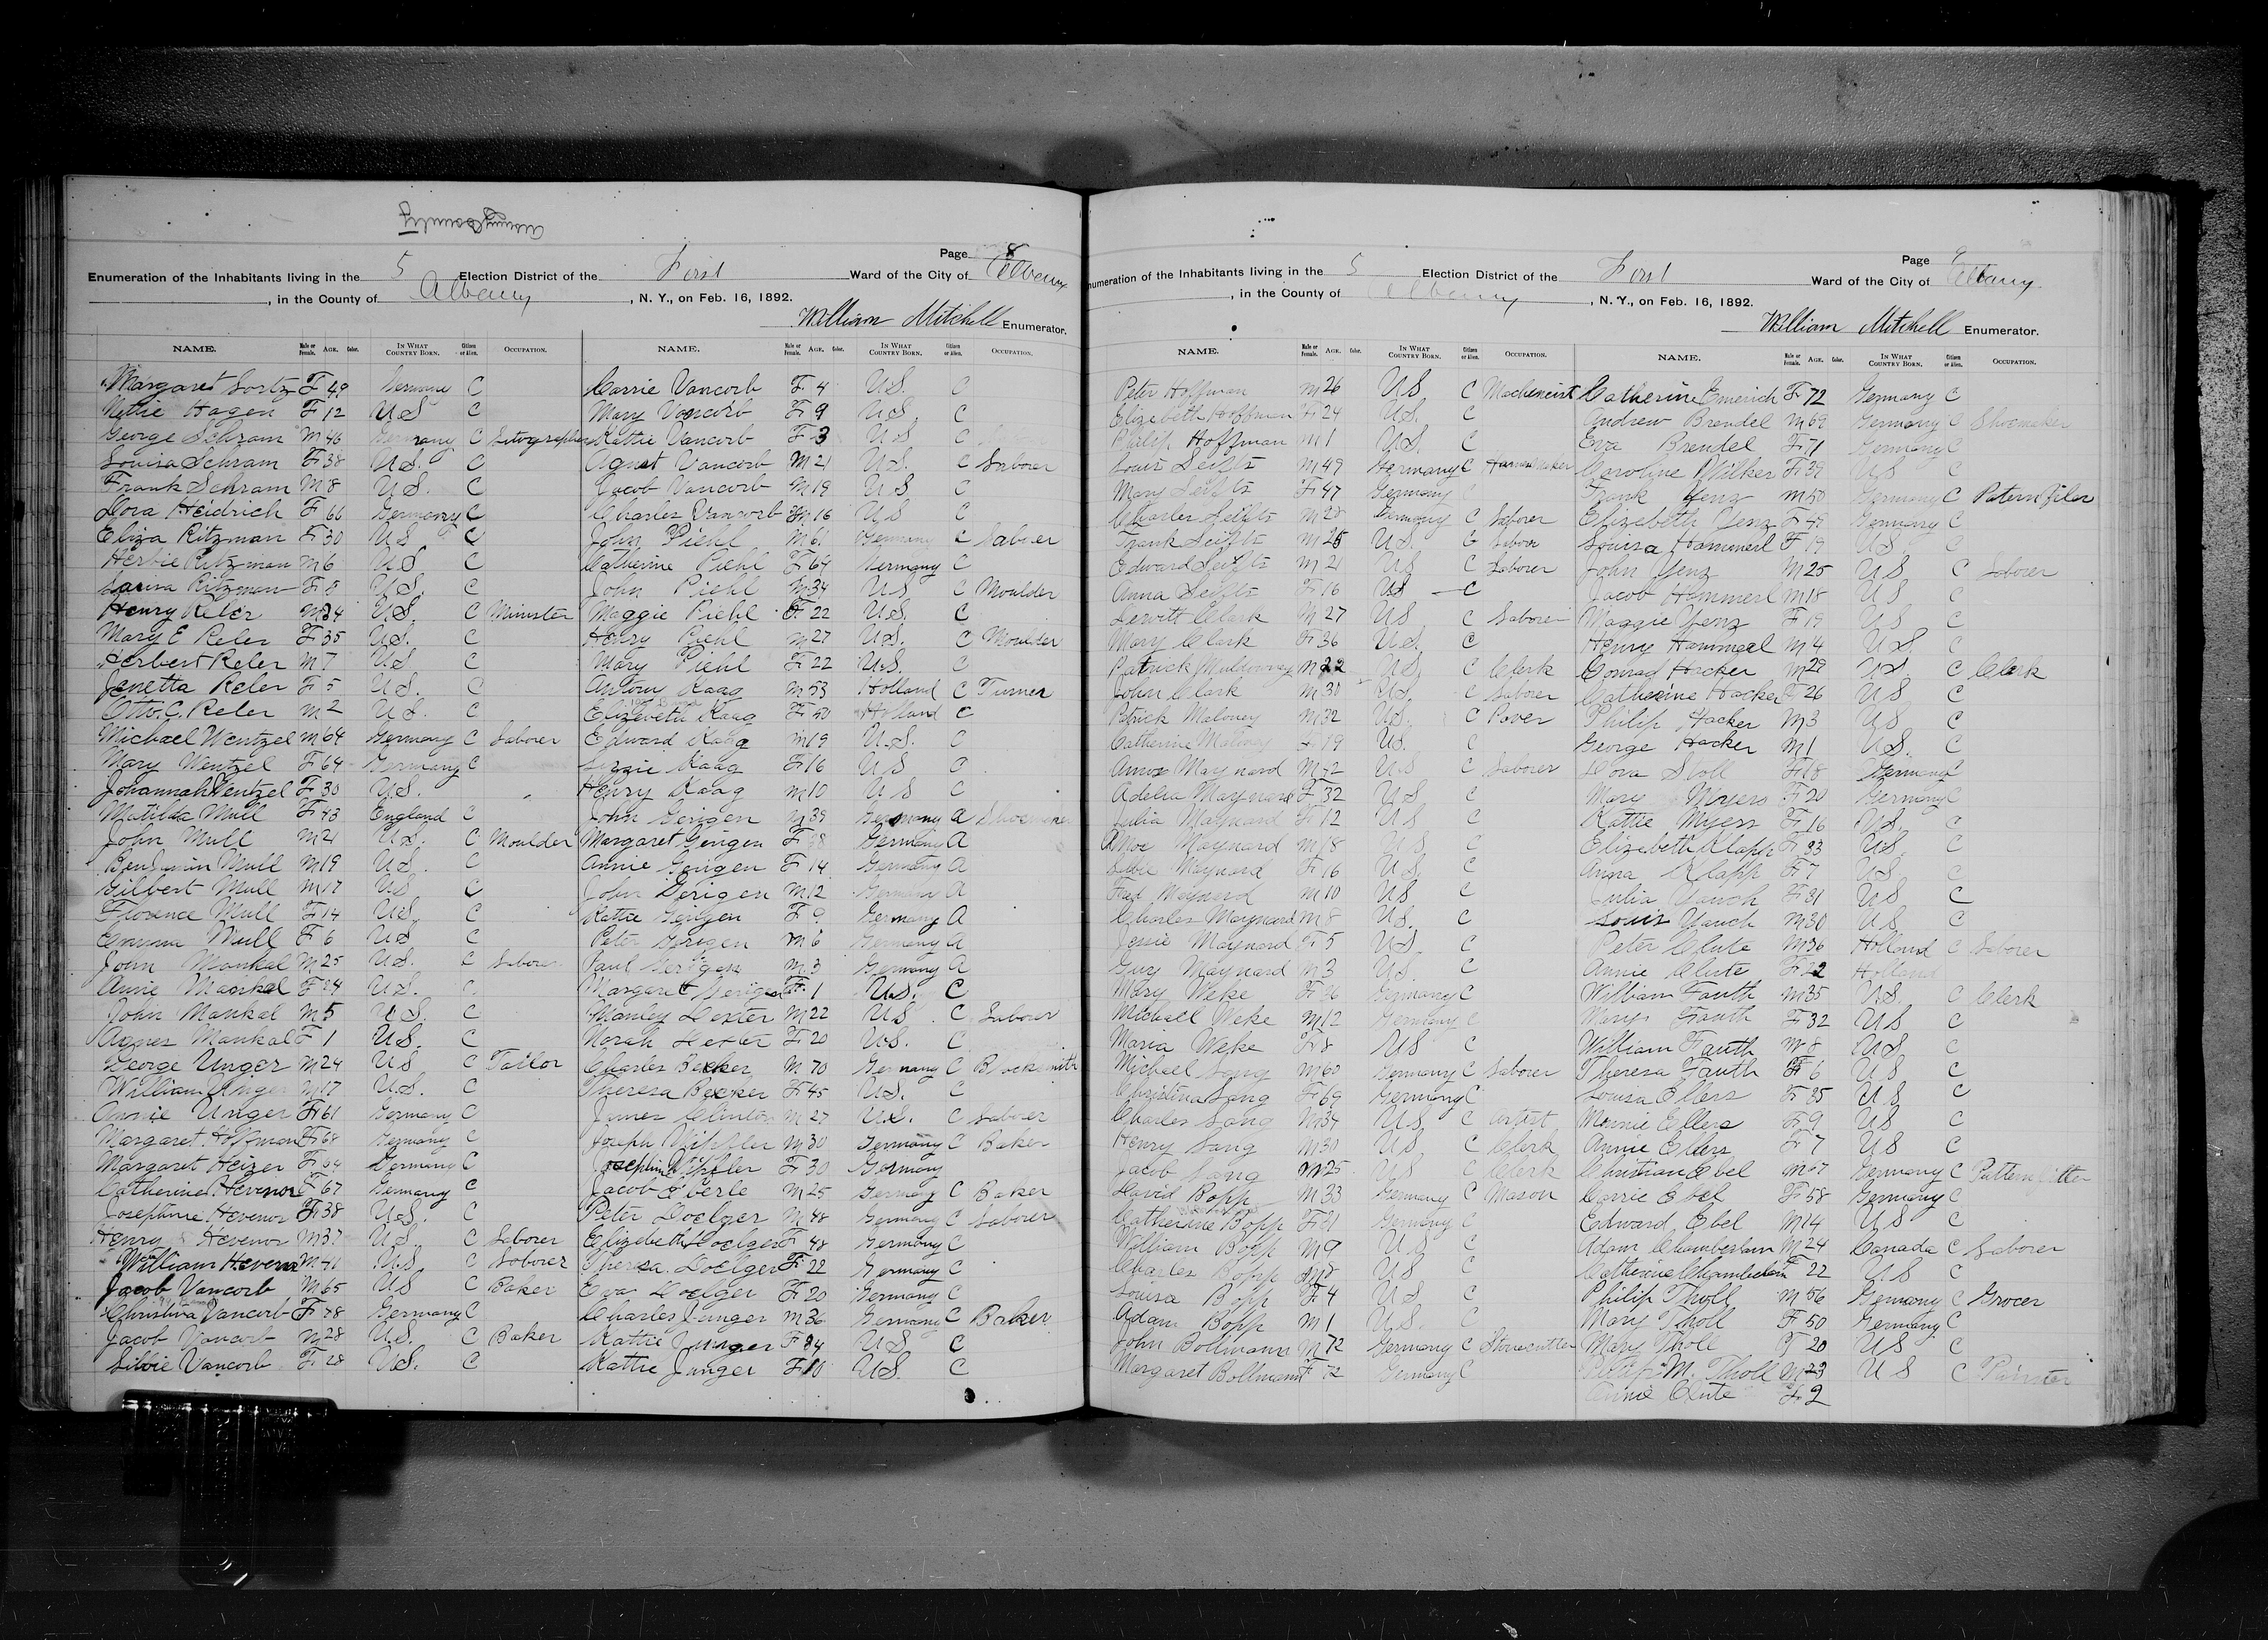 Albany County
Page 8
Enumeration of the Inhabitants living in the 5 Election District of the First Ward of the City of Albany
, in the County of Albany, N. Y., on Feb. 16, 1892.
William Mitchell Enumerator.
NAME. Male or Female. AGE. Color. IN WHAT COUNTRY BORN. Citizen or Alien. OCCUPATION.
Margaret Lortz F 49 Germany C
Nettie Hagen F 12 U S C
George Schram M 46 Germany C Litographer
Louisa Schram F 38 U.S. C
Frank Schram M 8 U.S. C
Dora Heidrich F 66 Germany C
Eliza Ritzman F 30 U S C
Herbie Ritzman M 6 U S C
Ritzman F 8 U.S. C
Henry Reler M 34 U.S. C Minister
Mary E Reler F 35 U.S. C
Herbert Reler M 7 U.S. C
Janetta Reler F 5 U.S. C
Otto. C. Reler M 2 U.S. C
Michael Wentzel M 64 Germany C Laborer
Mary Wentzel F 64 Germany C
Johannah Wentzel F 30 U.S.
Matilda Mull F 43 England C
John Mull M 21 U.S. C Moulder
Benjamin Mull M 19 U.S. C
Gilbert Mull M 17 U S C
Florence Mull F 14 U.S. C
Emma Mull F 6 U S C
John Mankal M 25 U.S. C Laborer
Annie Mankal F 24 U.S. C
John Mankal M 5 U.S. C
Agnes Mankal F 1 U.S. C
George Unger M 24 U S C Tailor
William Unger M 17 U.S. C
Annie Unger F 61 Germany C
Margaret Hoffman F 68 Germany C
Margaret Heizer F 64 Germany C
Catherine Hevenor F 67 Germany C
Josephine Hevenor F 38 U.S. C
Henry Hevenor M 37 U.S. C Laborer
William Hevenor M 41 U.S C Laborer
Jacob Vancorb M 65 U S C Baker
Christina Vancorb F 78 Germany C
Jacob Vancorb M 28 U.S. C Baker
Vancorb F 28 U.S. C
NAME. Male or Female. AGE. Color. IN WHAT COUNTRY BORN. Citizen or Alien. OCCUPATION.
Carrie Vancorb F 4 U.S. C
Mary Vancorb F 9 U.S. C
Kattie Vancorb F 3 U S C
Agust Vancorb M 21 U.S. C Laborer
Jacob Vancorb M 19 U.S. C
Charles Vancorb M 16 U S C
John Piehl M 61 Germany C Laborer
Catherine Piehl F 64 Germany C
John Piehl M 34 U S C Moulder
Maggie Piehl F 22 U.S. C
Henry Piehl M 27 U.S. C Moulder
Mary Piehl F 22 U.S. C
Antony Kaag M 53 Holland C Turner
Elizebeth Kaag F 50 Holland C
Edward Kaag M 19 U.S. C
Lizzie Kaag F 16 U S C
Henry Kaag M 10 U S C
John Gerigen M 39 Germany A Shoemaker
Margaret Gerigen F Germany A
Annie Gerigen F 14 Germany A
John Gerigen M 12 Germany A
Kattie Gerigen F 9 Germany A
Peter Gerigen M 6 Germany A
Paul Gerigen M 3 Germany A
Margaret Gerigen F 1 U.S. C
Manley Dexter M 22 U S C Laborer
Norah Dexter F 20 U.S. C
Charles Becker M 70 Germany C Blacksmith
Theresa Becker F 45 U.S. C
James Clinton M 27 U.S. C Laborer
Joseph Nippler M 30 Germany C Baker
Josephine Nippler F 30 Germany
Jacob Eberle M 25 Germany C Baker
Peter Doelger M 48 Germany C Laborer
Elizebeth Doelger F 48 Germany C
Theresa Doelger F 22 Germany C
Eva Doelger F 20 Germany C
Charles Junger M 36 Germany C Baker
Kattie Junger F 34 U S C
Kattie Junger F 10 U.S. C
Page 9
Enumeration of the Inhabitants living in the 5 Election District of the First Ward of the City of Albany
, in the County of Albany, N. Y., on Feb. 16, 1892.
William Mitchell Enumerator.
NAME. Male or Female. AGE. Color. IN WHAT COUNTRY BORN. Citizen or Alien. OCCUPATION.
Peter Hoffman M 26 U S C Macheneist
Elizebeth Hoffman F 24 U.S. C
Philip Hoffman M 1 U.S. C
Louis Seifts M 49 Germany C Harnessmaker
Mary Seifts F 47 Germany C
Charles Seifts M 28 Germany C Laborer
Frank Seifts M 25 U.S. C Labor
Edward Seifts M 21 U S C Laborer
Anna Seifts F 16 U S C
Dewitt Clark M 27 U S C Laborer
Mary Clark F 36 U.S. C
Patrick M 22 U S C Clerk
John Clark M 30 U.S. C Laborer
Patrick Maloney M 32 U.S. C Paver
Catherine Maloney F 19 U.S. C
Amos Maynard M 42 U S C Laborer
Adelia Maynard F 32 U S C
Julia Maynard F 12 U S C
Maynard M 18 U S C
Maynard F 16 U S C
Fred Maynard M 10 U S C
Charles Maynard M 8 U.S. C
Jessie Maynard F 5 U.S. C
Guy Maynard M 3 U.S. C
Mary Weke F 36 Germany C
Michael Weke M 12 Germany C
Maria Weke F 8 U S C
Michael Lang M 60 Germany C Laborer
Christina Lang F 69 Germany C
Charles Lang M 34 U S C Artist
Henry Lang M 30 U S C Clerk
Jacob Lang M 25 U S C Clerk
David Bopp M 33 Germany C Mason
Catherine Bopp F 31 Germany C
William Bopp M 9 U.S C
Charles Bopp M 8 U S C
Louisa Bopp F 4 U S C
Adam Bopp M 1 U.S. C
John Bollmann M 72 Germany C Stonecutter
Margaret Bollmann F 72 Germany C
NAME. Male or Female. AGE. Color. IN WHAT COUNTRY BORN. Citizen or Alien. OCCUPATION.
Catherine Emerich F 72 Germany C
Andrew Brendel M 69 Germany C Shoemaker
Eva Brendel F 71 Germany C
Caroline Wilker F 39 U S C
Frank Yenz M 50 Germany C Patern Filer
Elizebeth Yenz F 49 Germany C
Louisa Hammerl F 19 U.S. C
John Yenz M 25 U S C Laborer
Jacob Hammerl M 18 U S C
Maggie Yenz F 19 U S C
Henry Hammerl M 4 U.S. C
Conrad Hacker M 29 U.S. C Clerk
Catherine Hacker F 26 U S C
Philip Hacker M 3 U S C
George Hacker M 1 U.S. C
Dora Stoll F 18 Germany C
Mary Myers F 20 Germany C
Kattie Myers F 16 U.S. C
Elizebeth Klapp F 33 U.S. C
Anna Klapp F 7 U.S. C
Julia Yauch F 31 U S C
Louis Yauch M 30 U.S. C
Peter Clute M 36 Holland C Laborer
Annie Clute F 22 Holland
William Fauth M 35 U.S. C Clerk
Mary Fauth F 32 U S C
William Fauth M 8 U S C
Theresa Fauth F 6 U S C
Louisa Ellers F 35 U S C
Minnie Ellers F 9 U S C
Annie Ellers F 7 U S C
Christian Ebel M 67 Germany C Pattern
Carrie Ebel F 58 Germany C
Edward Ebel M 14 U S C
Adam Chamberlain M 24 Canada C Laborer
Catherine Chamberlain F 22 U S C
Philip Tholl M 56 Germany C Grocer
Mary Tholl F 50 Germany C
Mary Tholl F 20 U S C
Philip M. Tholl M 23 U S C Painter
Annie Clute F 2